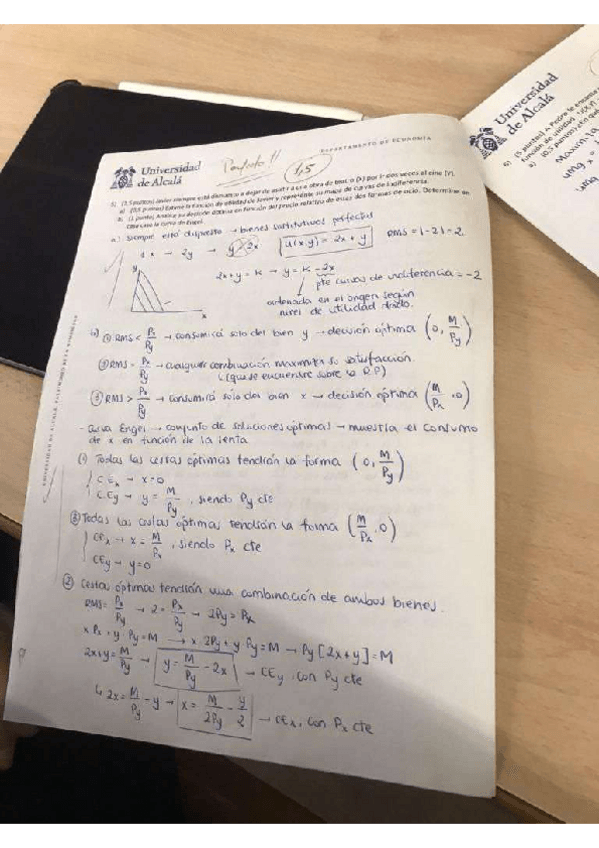 DEPARTAMENTO DE ECONOMÍA
Universidad
de Alcalá
Perfecto!!
1,5
5) (1,5 puntos) Javier siempre está dispuesto a dejar de asistir a una obra de teatro (X) por ir dos veces al cine (Y).
a) (0,5 puntos) Estime la función de utilidad de Javier y represente su mapa de curvas de indiferencia.
b) (1 punto) Analice su decisión óptima en función del precio relativo de estas dos formas de ocio. Determine en
cada caso la curva de Engel.
a) Siempre está dispuesto → bienes sustitutivos perfectos
1x → 2y → y 2x u(x,y) = 2x + y RMS = |-2| = 2
2x+y = K → y = K - 2x
pte curvas de indiferencia = -2
ordenada en el origen según
nivel de utilidad dado.
x
① RMS < Px/Py → consumirá solo del bien y → decisión óptima (0, M/Py)
② RMS = Px/Py → cualquier combinación maximiza su satisfacción.
(que se encuentre sobre la R.P)
③ RMS > Px/Py → consumirá solo del bien x → decisión óptima (M/Px, 0)
- Curva Engel → conjunto de soluciones óptimas → muestra el consumo
de x en función de la renta
① Todas las cestas óptimas tendrán la forma (0, M/Py)
CEx → x=0
CEy → y = M/Py, siendo Py cte
③ Todas las cestas óptimas tendrán la forma (M/Px, 0)
CEx → x = M/Px, siendo Px cte
CEy → y=0
② Cestas óptimas tendrán una combinación de ambos bienes.
RMS = Px/Py → 2 = Px/Py → 2Py = Px
x Px + y Py = M → x 2Py + y Py = M → Py [2x+y] = M
2x+y = M/Py → y = M/Py - 2x → CEy, con Py cte
↳ 2x = M/Py - y → x = M/2Py - y/2 → CEx, con Px cte
Universidad
de Alcalá